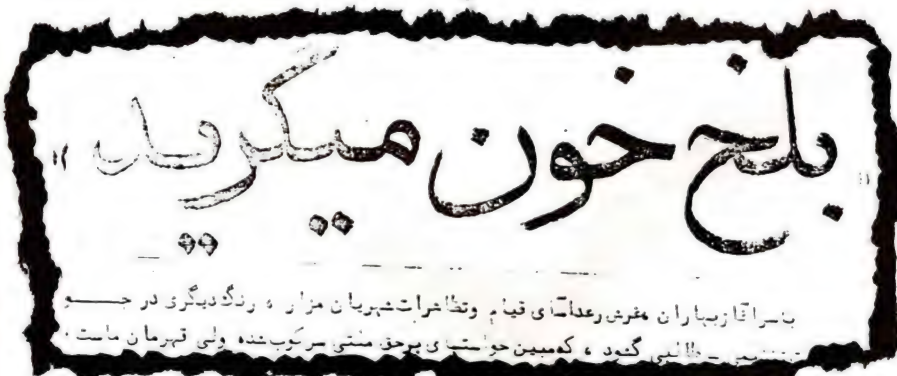 «بلخ خون میگرید»
باسرآغاز بهاران غرش رعدآسای قیام وتظاهرات شهریان مزار ، رنگ دیگری در جــو
طالبی گشود ، که مبین خواستهای برحق ملتی سرکوب شده ولی قهرمان ماست .